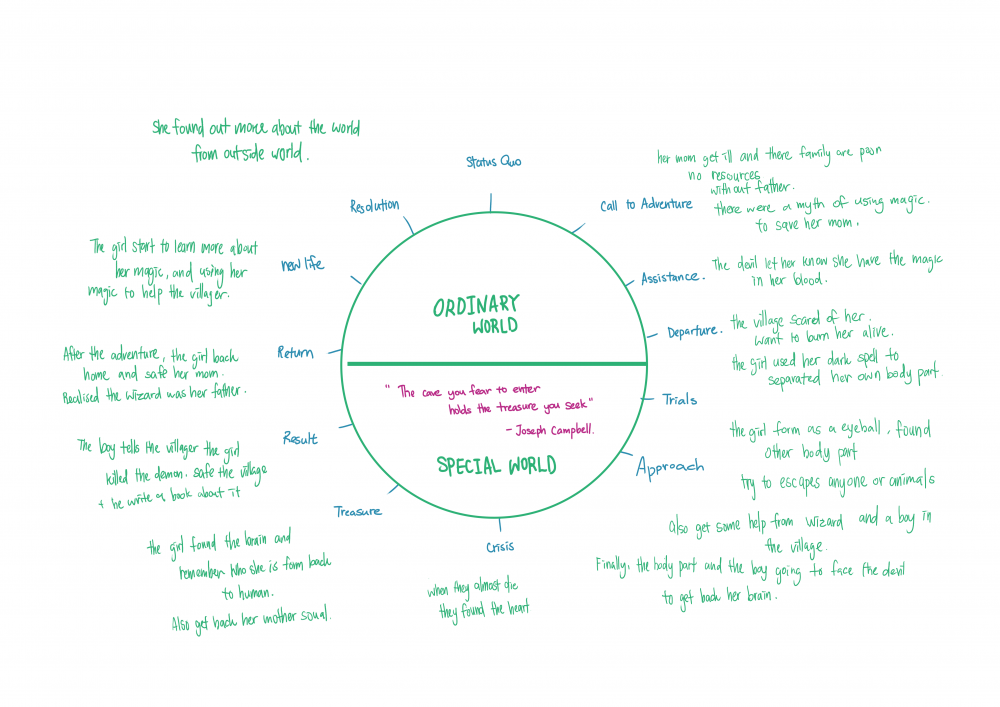 She found out more about the world
from outside world.
Status Quo
her mom get ill and there family are poor
no resources
without father.
there were a myth of using magic.
to save her mom.
Call to Adventure
Resolution
The girl start to learn more about
her magic, and using her
magic to help the villager.
new life
Assistance.
The devil let her know she have the magic
in her blood.
ORDINARY
WORLD
Departure.
the village scared of her.
want to burn her alive.
the girl used her dark spell to
separated her own body part.
After the adventure, the girl back
home and safe her mom.
Realised the wizard was her father.
Return
" The cave you fear to enter
holds the treasure you seek"
- Joseph Campbell.
Trials
the girl form as a eyeball, found
other body part
try to escapes anyone or animals
The boy tells the villager the girl
killed the demon. safe the village
+ he write a book about it
Result
SPECIAL WORLD
Approach
Also get some help from wizard and a boy in
the village.
Finally, the body part and the boy going to face the devil
to get back her brain.
Treasure
the girl found the brain and
remember who she is form back
to human.
Also get back her mother soual.
Crisis
when they almost die
they found the heart